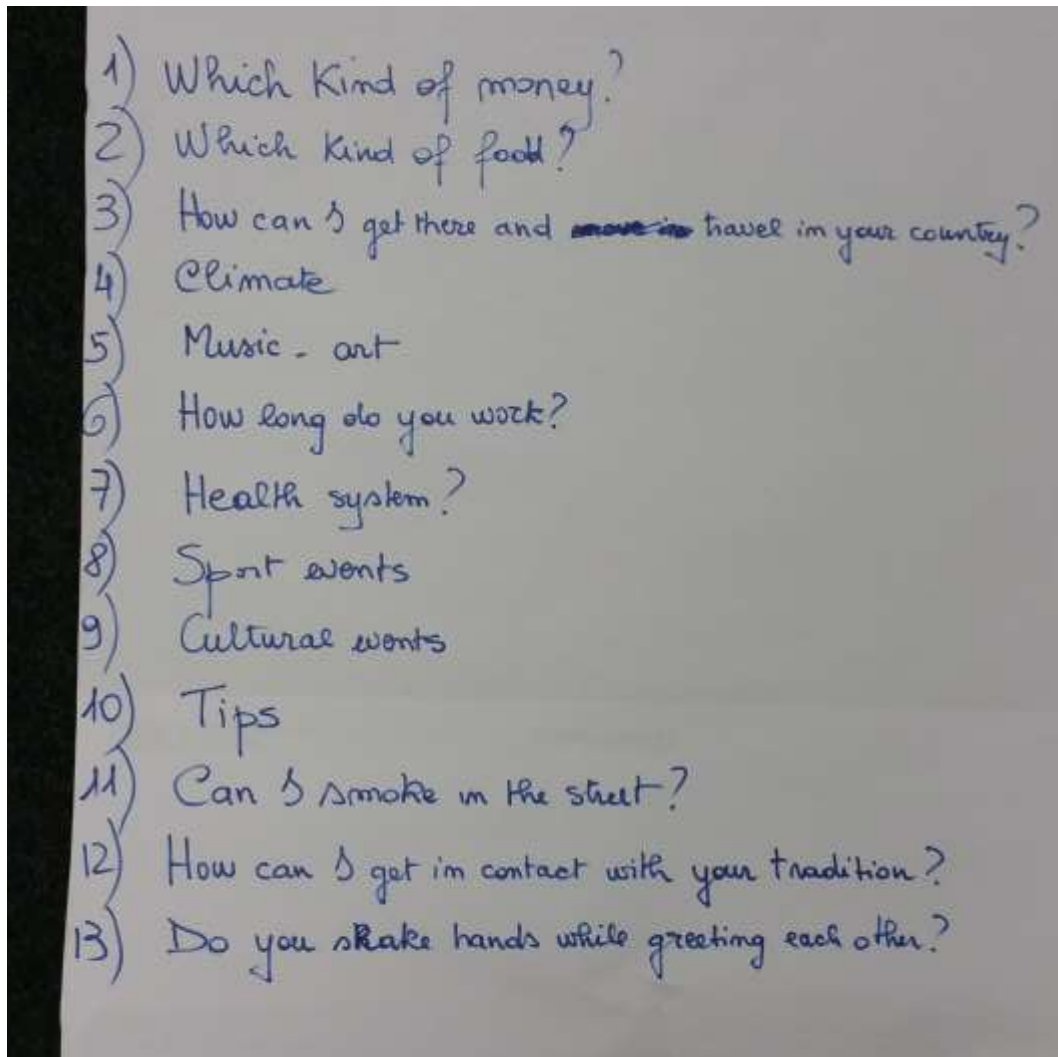 1) Which Kind of money?
2) Which Kind of food?
3) How can I get there and move in travel in your country?
4) Climate
5) Music - art
6) How long do you work?
7) Health system?
8) Sport events
9) Cultural events
10) Tips
11) Can I smoke in the street?
12) How can I get in contact with your tradition?
13) Do you shake hands while greeting each other?